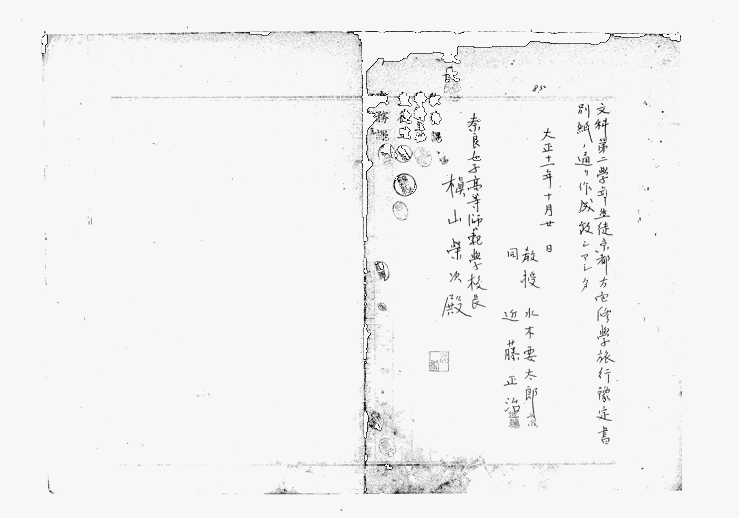 文科第二學年生徒京都方面修學旅行豫定書
別紙ノ通リ作成致シマシタ
大正十一年十月廿日
教授 水木要太郎
同 近藤正治
奈良女子高等師範學校長
槇山榮次殿
85